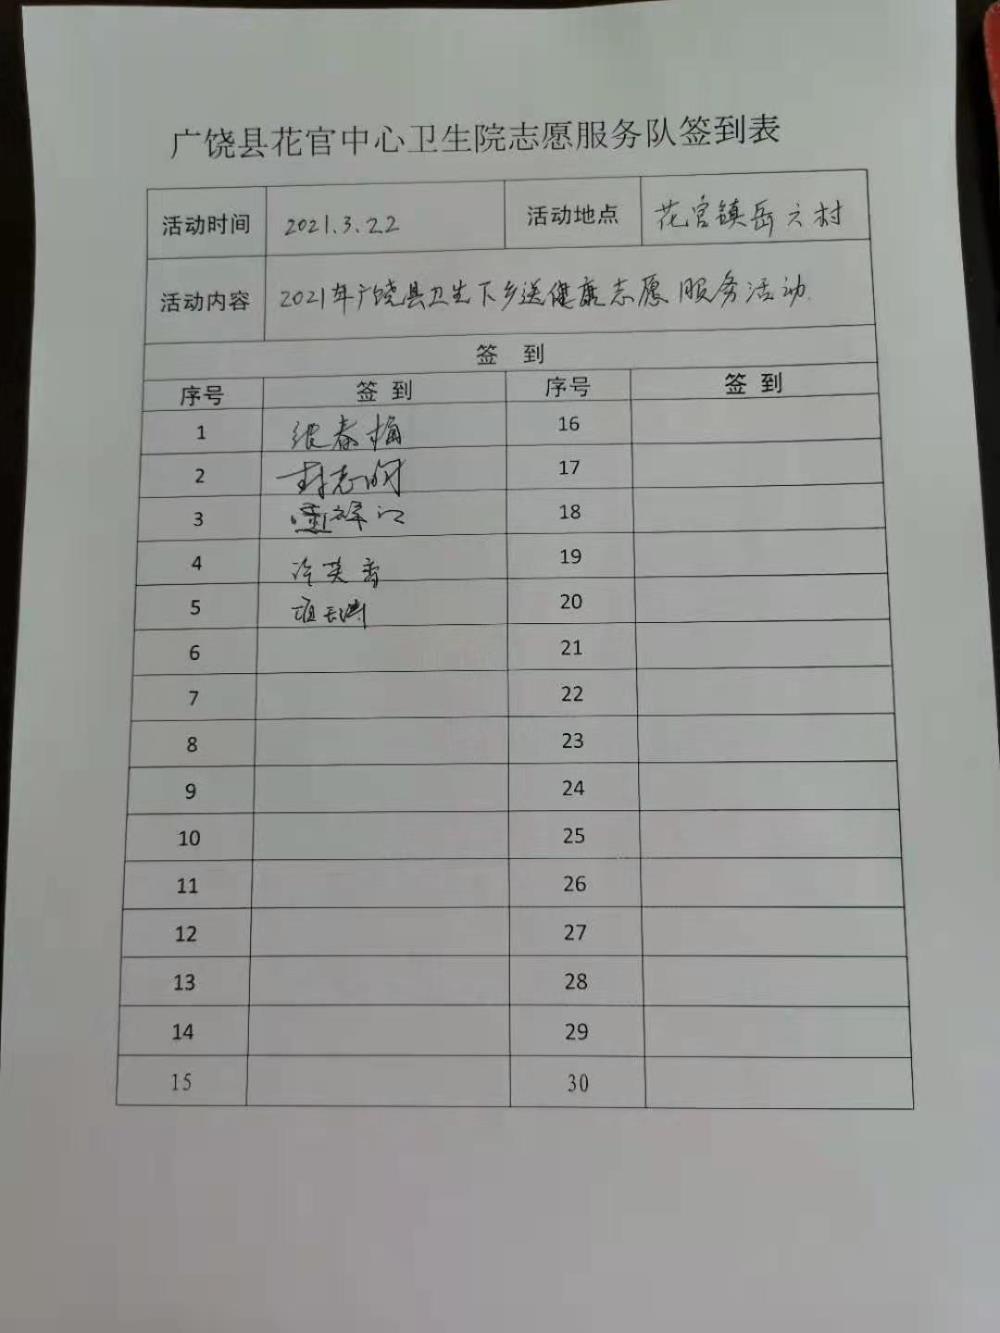 广饶县花官中心卫生院志愿服务队签到表
活动时间 2021.3.22 活动地点 花官镇岳六村
活动内容 2021年广饶县卫生下乡送健康志愿服务活动
签 到
序号 签 到 序号 签 到
1 春梅 16
2 封志明 17
3 18
4 冷英香 19
5 20
6 21
7 22
8 23
9 24
10 25
11 26
12 27
13 28
14 29
15 30